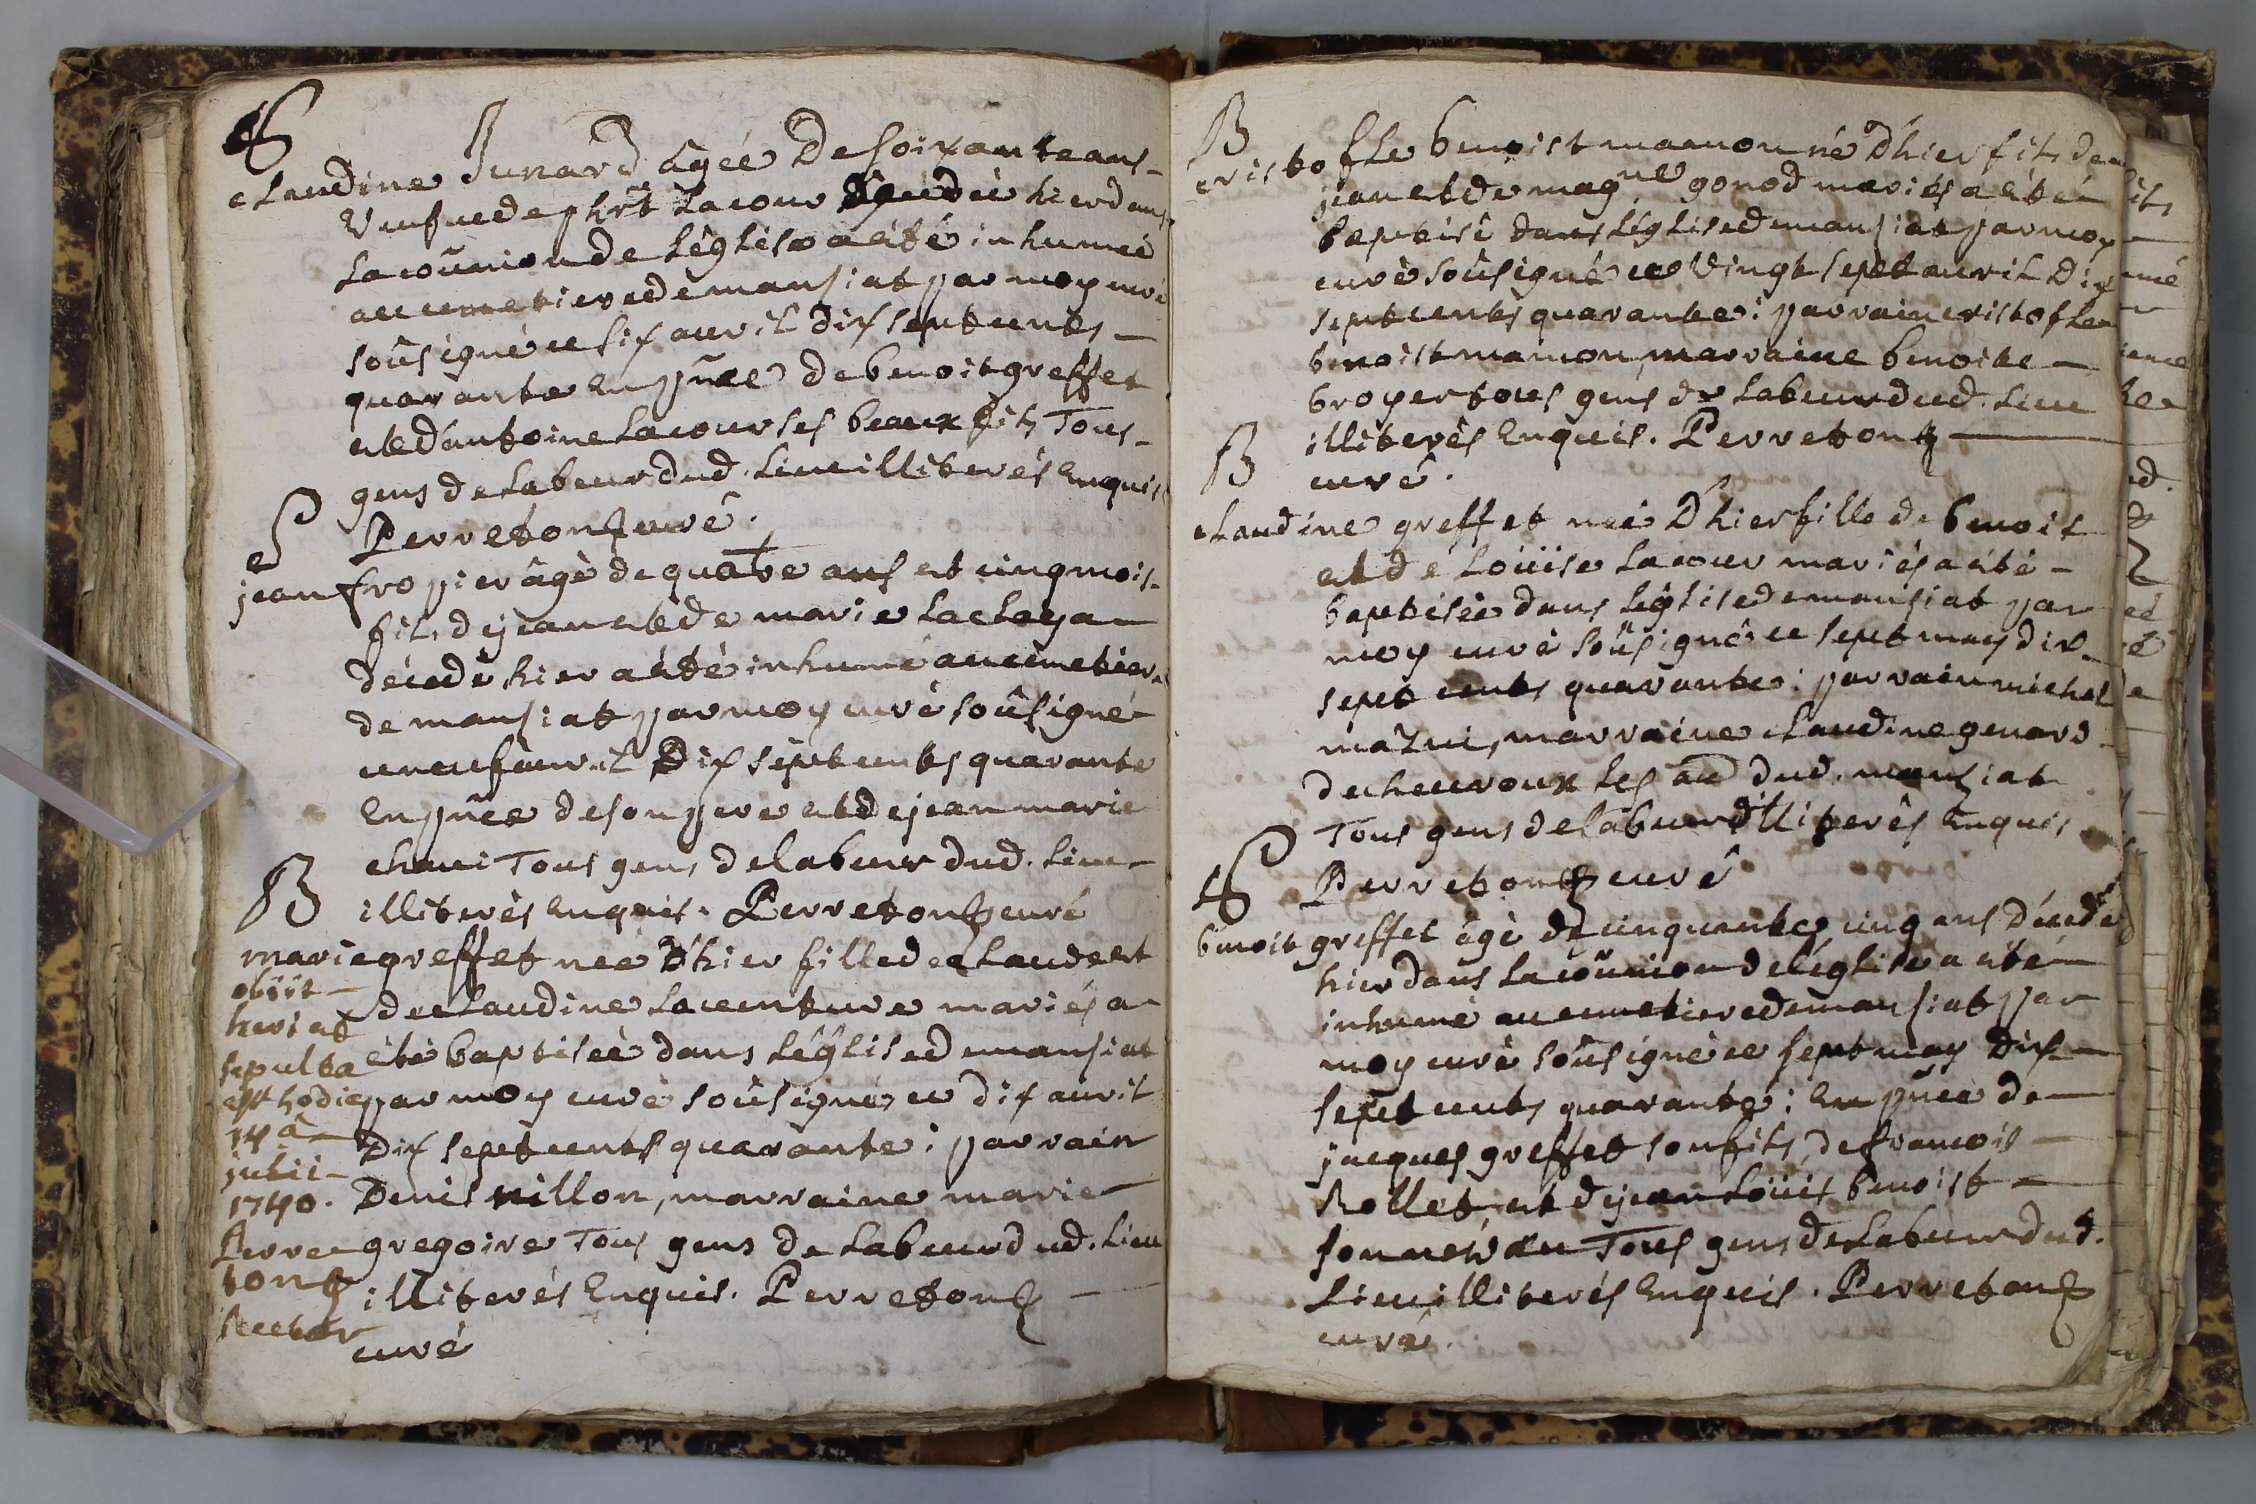 S
claudine Junard âgée de soixante ans
veufue de phrt Lacour décédée hier dans
la coũnion de L'église a été inhumée
au cimetiere de mansiat par moy curé
soûsigné ce six auril dix sept cents
quarante En pñce de benoit greffet
et d'antoine Lacour ses beaux fils Tous
gens de Labeur dud. Lieu illiterés Enquis
Perreton curé.
S
jean fropier âgè de quatre ans et cinq mois
fils de jean et de marie Lacleya
décedé hier a été inhumé au cimetiere
de mansiat par moy curé soûsigné
ce neuf auril Dix sept cents quarante
En pñce de son pere et de jean marie
Tous gens de labeur dud. Lieu
illiterès Enquis. Perreton curé
B
marie greffet née D'hier fille de claude et
de claudine Lacenture mariés a
été baptisée dans L'église de mansiat
par moy curé soûsigné ce dix auril
Dix sept cents quarante: parrain
Denis nillon, marraine marie
gregoire Tous gens de Labeur dud. Lieu
illiterés Enquis. Perreton
curé
obiit
heri et
sepulta
est hodie
14â
julii
1740.
Perre
ton
Rector
B
cristofle benoist mamon né D'hier fils de
jean et de magne gonod mariés a été
baptisé dans L'église de mansiat par moy
curé soûsigné ce vingt sept auril Dix
sept cents quarante: parrain cristofle
benoist mamon, marraine benoite
broyer tous gens de Labeur dud. Lieu
illiterés Enquis. Perreton
curé.
B
claudine greffet née D'hier fille de benoit
et de Loüise Lacour mariés a été
baptisée dans L'église de mansiat par
moy curé soûsigné ce sept may dix
sept cents quarante: parrain michel
mazui, marraine claudine genard
de cheuroux Les au dud. mansiat
Tous gens de labeur illiterés Enquis
Perreton curé
S
benoit greffet âgé de cinquante cinq ans décedé
hier dans la coũnion de l'église a été
inhumé au cimetiere de mansiat par
moy curé soûsigné ce sept may Dix
sept cents quarante: En pñce de
jacques greffet son fils, de francois
Rollet, et de jean Loüis benoist
son neueu Tous gens de Labeur dud.
Lieu illiterés Enquis. Perreton
curé.